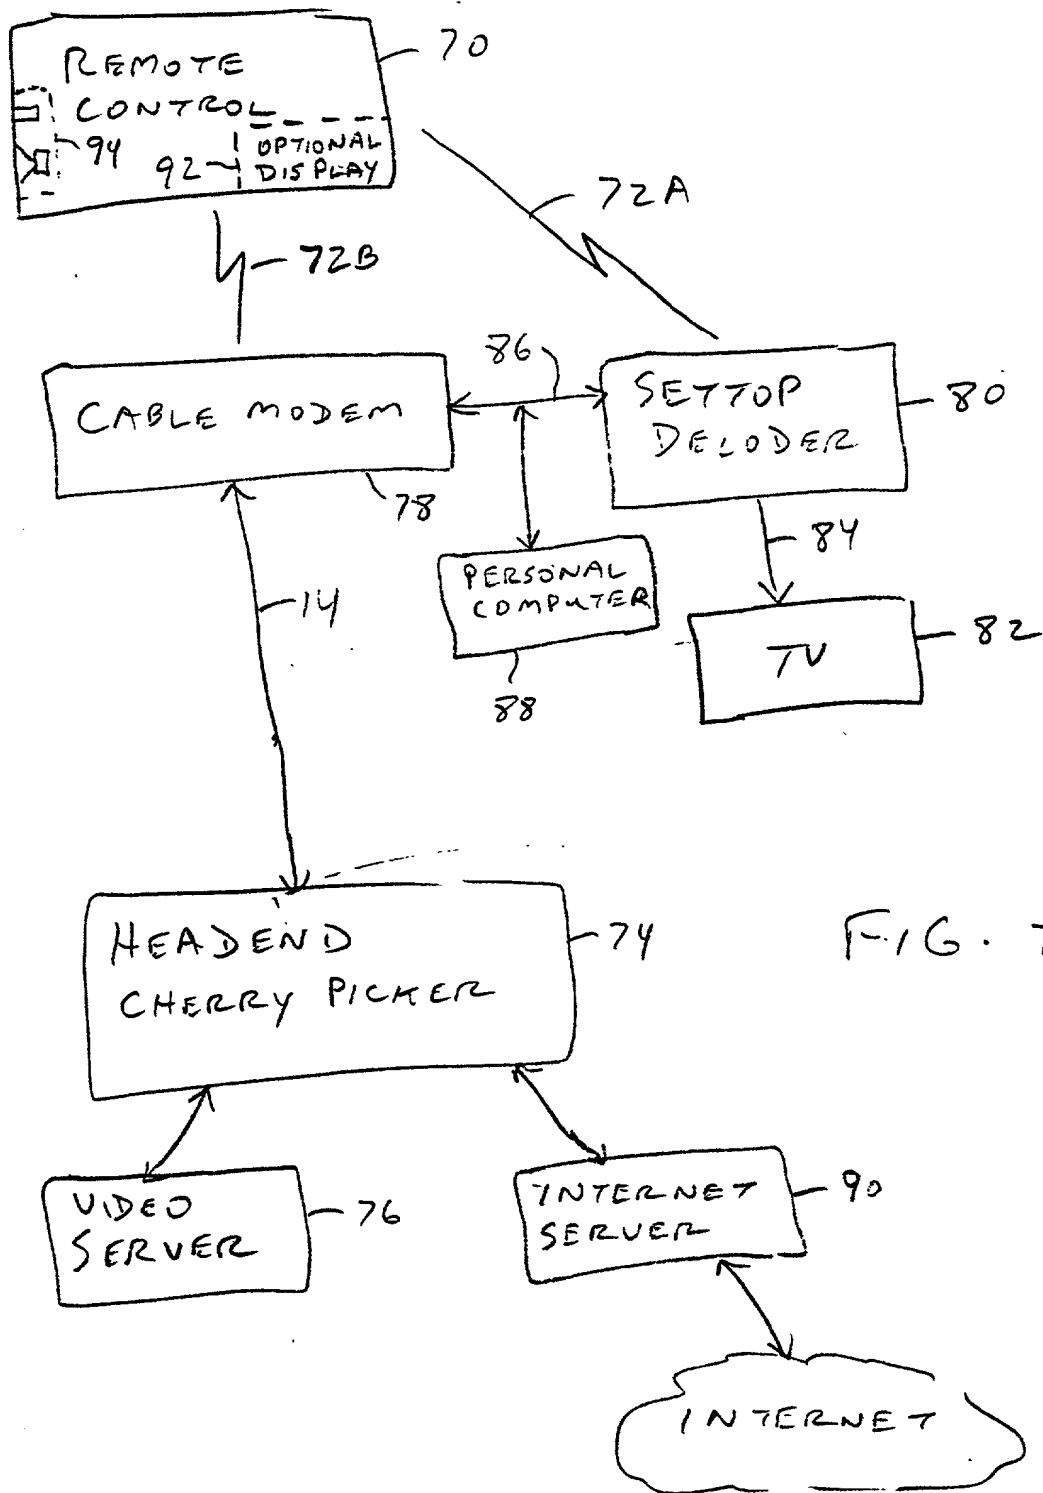 REMOTE
CONTROL
70
94
92
OPTIONAL
DISPLAY
72A
72B
86
CABLE MODEM
SETTOP
DECODER
80
78
84
14
PERSONAL
COMPUTER
TV
82
88
HEADEND
CHERRY PICKER
74
FIG.
VIDEO
SERVER
76
INTERNET
SERVER
90
INTERNET